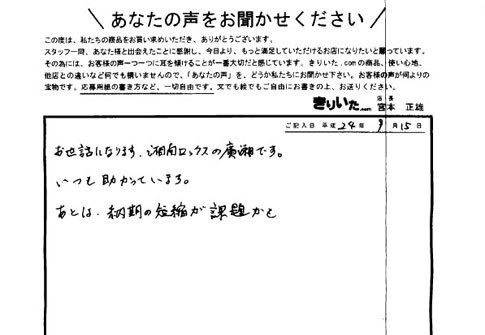 あなたの声をお聞かせください
この度は、私たちの商品をお買い求めいただき、ありがとうございます。
スタッフ一同、あなた様と出会えたことに感謝し、今日より、もっと満足していただけるお店になりたいと願っています。
その為には、お客様の声一つ一つに耳を傾けることが一番大切だと感じています。きりいた.comの商品、使い心地、
他店との違いなど何でも構いませんので、「あなたの声」を、どうか私たちにお聞かせ下さい。お客様の声が何よりの
宝物です。応募用紙の書き方など、一切自由です。文でも絵でもご自由にお書きの上、お送りください。
きりいた.com 店長 宮本 正雄
ご記入日 平成 24年 9月 15日
お世話になります、湘南ロックスの廣瀬です。
いつも助かっています。
あとは、納期の短縮が課題かと